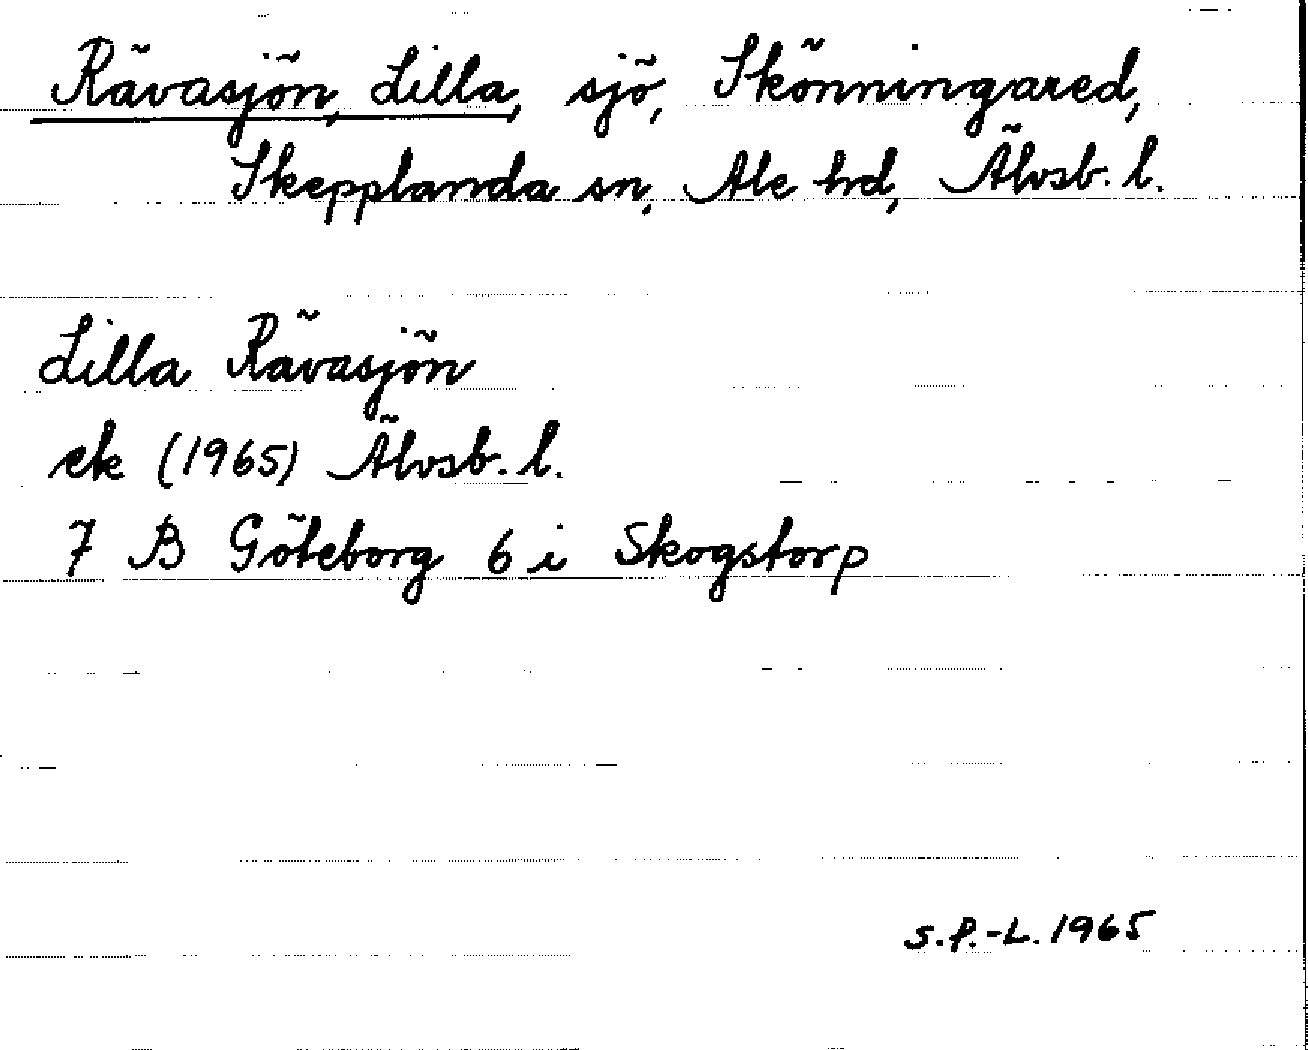 Rävasjön, Lilla, sjö, Skönningared,
Skepplanda sn, Ale hd, Älvsb. l.
Lilla Rävasjön
ek (1965) Älvsb. l.
7 B Göteborg 6 i Skogstorp
S.P.-L. 1965